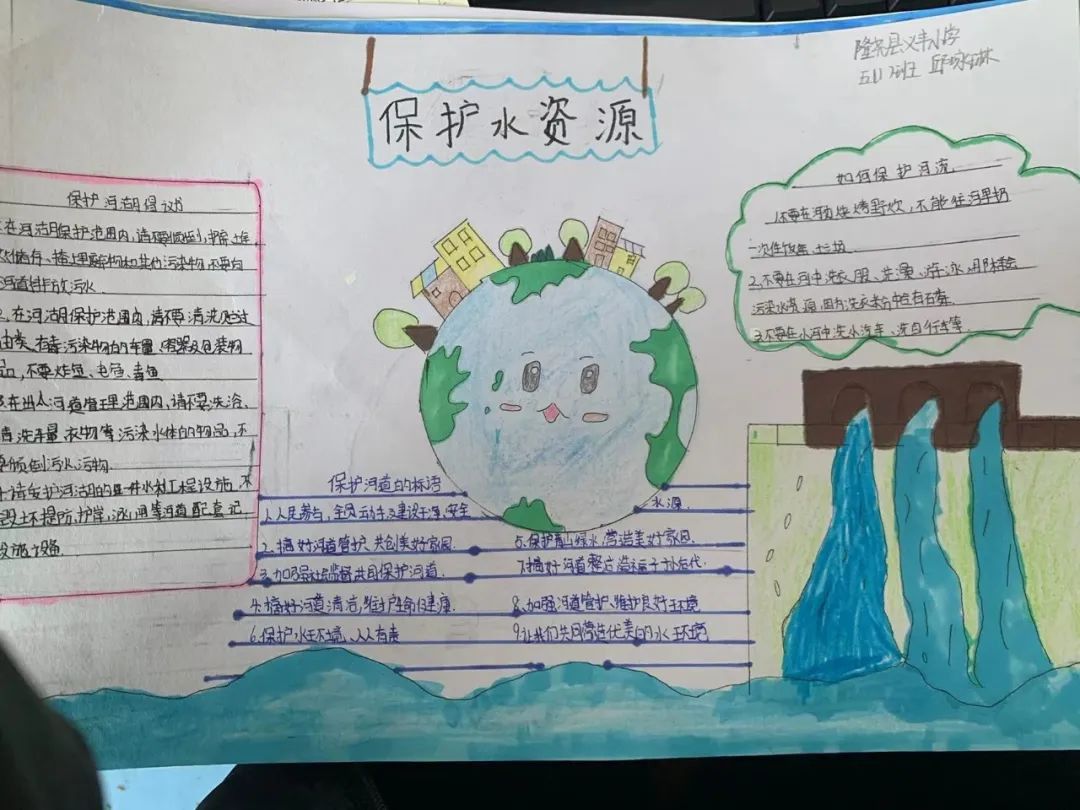 保护水资源
隆尧县义丰小学
五(1)班 邱咏琳
保护河湖倡议书
在河湖保护范围内,请不要倾倒,
储存、掩埋废弃物和其他污染物,不要向
河道排放污水.
2.在河湖保护范围内,请不要清洗
油类、有毒污染物的车量、容器及包装物
品,不要炸鱼、电鱼、毒鱼
在出入河道管理范围内,请不要洗浴,
清洗车量、衣物等污染水体的物品,不
要倾倒污水污物.
请爱护河湖的 水利工程设施,不
毁土不堤防、护岸、涵闸等河道配套
设施设备
如何保护河流
1.不要在河边烧烤野炊,不能往河里扔
一次性饭盒、垃圾
2.不要在河中洗衣服、洗澡、游泳,
污染水资源,因为洗衣粉中含有
3.不要在小河中洗小汽车、洗自行车等.
保护河道的标语
1.人人民参与,全员动手 建设干净、安全
水源.
2.搞好河道管护,共创美好家园.
3.加强社会监督共同保护河道.
4.搞好河道清洁,维护生命健康.
5.保护青山绿水,营造美好家园.
6.保护水环境、人人有责
7.搞好河道整治造福子孙后代.
8.加强河道管护、维护良好环境
9.让我们共同营造优美的水环境